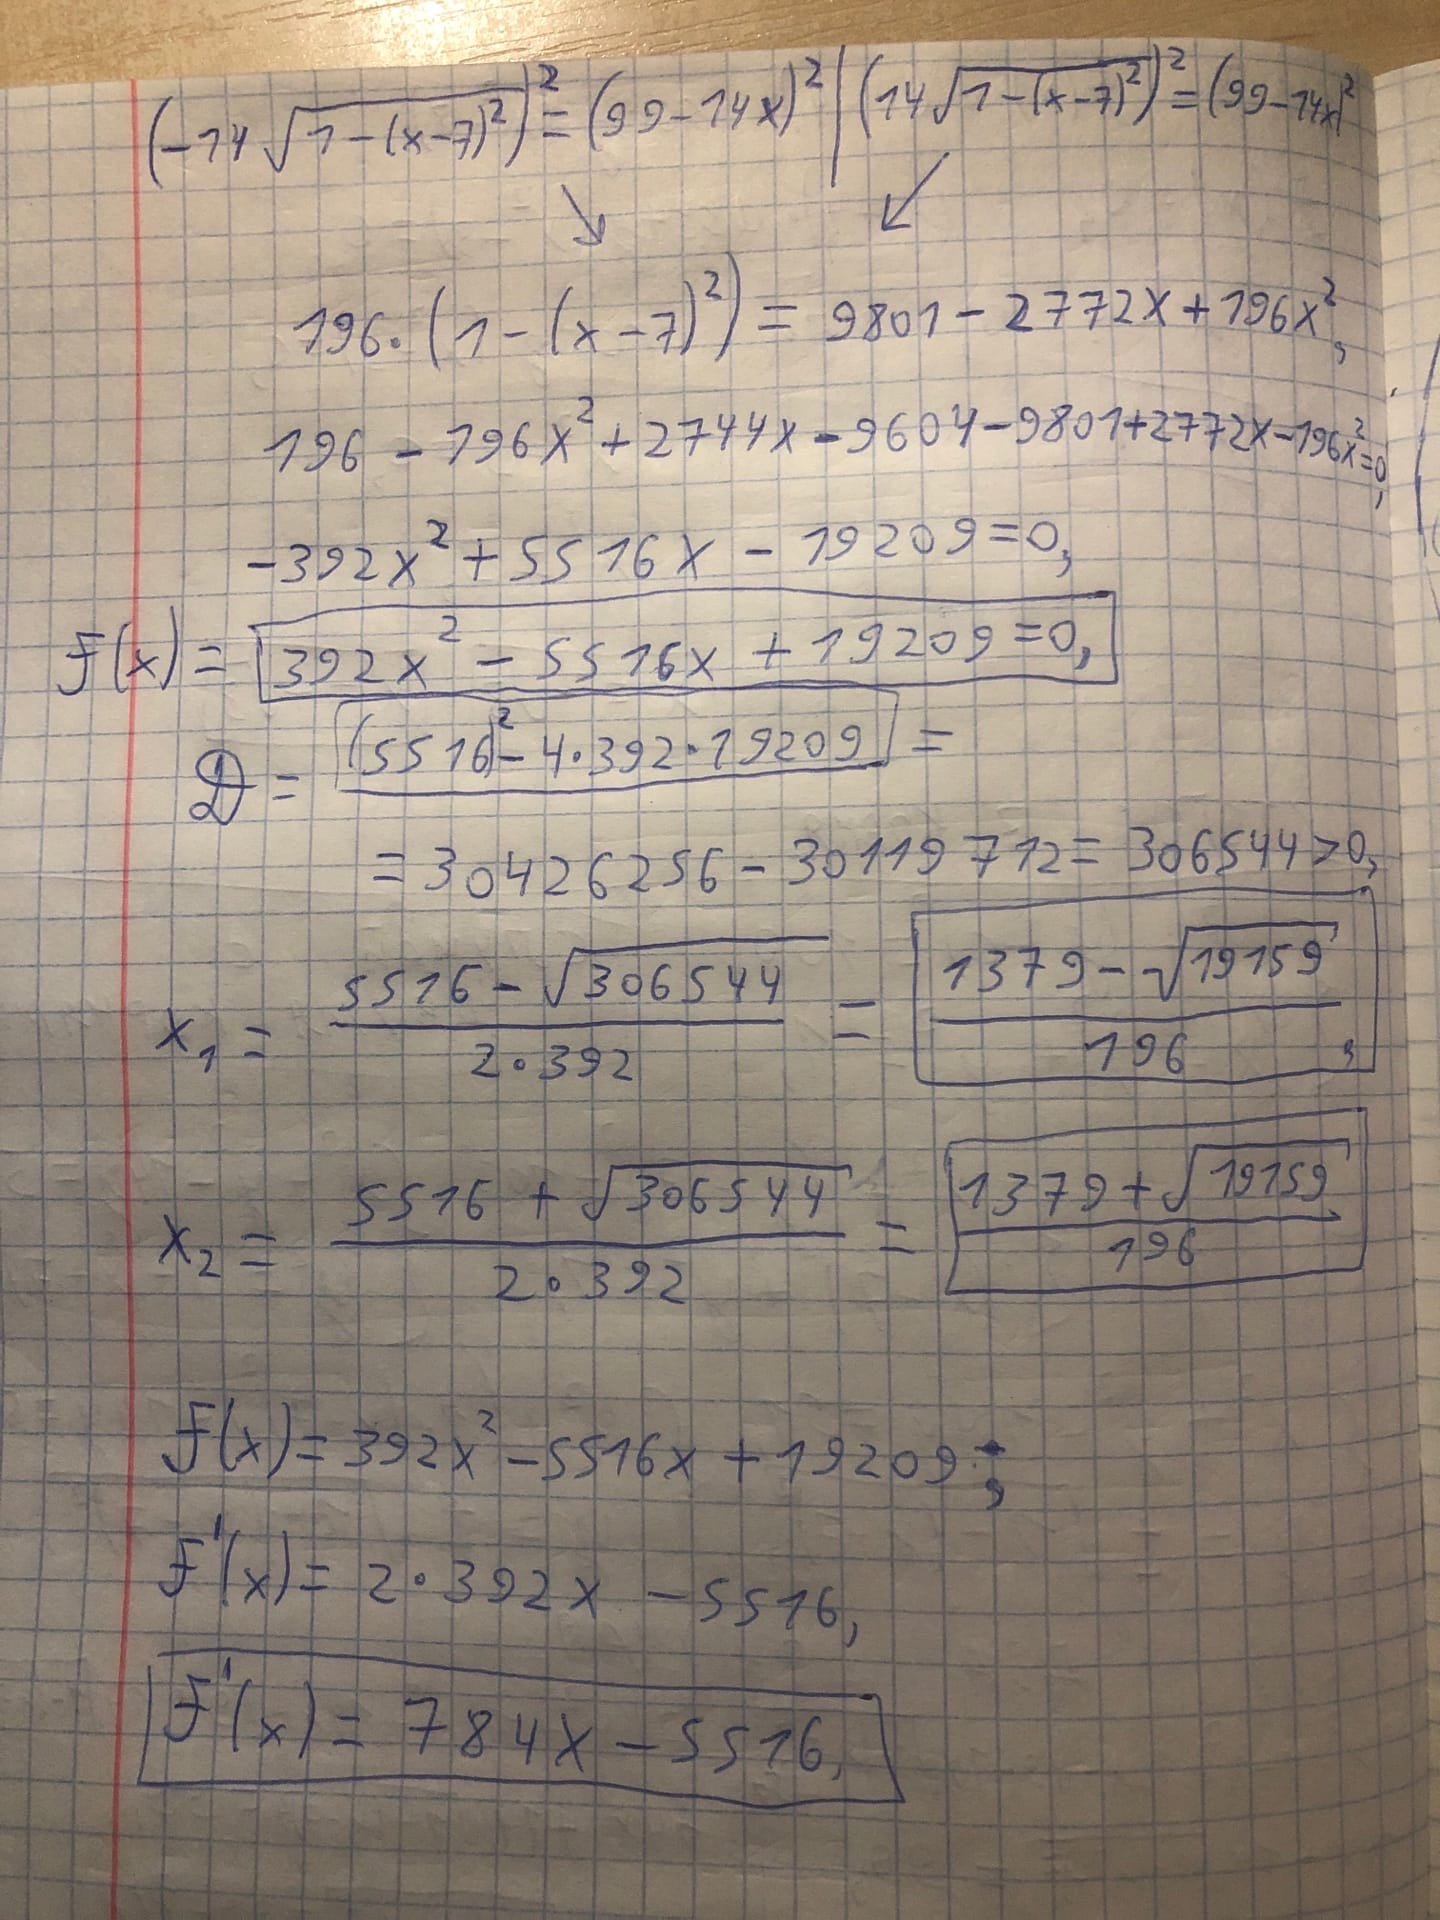 (-14√(1-(x-7)²))² = (99-14x)² | (14√(1-(x-7)²))² = (99-14x)²
196·(1-(x-7)²) = 9801-2772x+196x²,
196-196x²+2744x-9604-9801+2772x-196x²=0,
-392x²+5516x-19209=0,
F(x)= 392x²-5516x+19209=0,
D = (5516)²-4·392·19209 =
=30426256-30119712=306544>0,
x₁ = (5516-√306544)/(2·392) = (1379-√19159)/196,
x₂ = (5516+√306544)/(2·392) = (1379+√19159)/196
F(x)=392x²-5516x+19209;
F'(x)=2·392x-5516,
F'(x)=784x-5516,